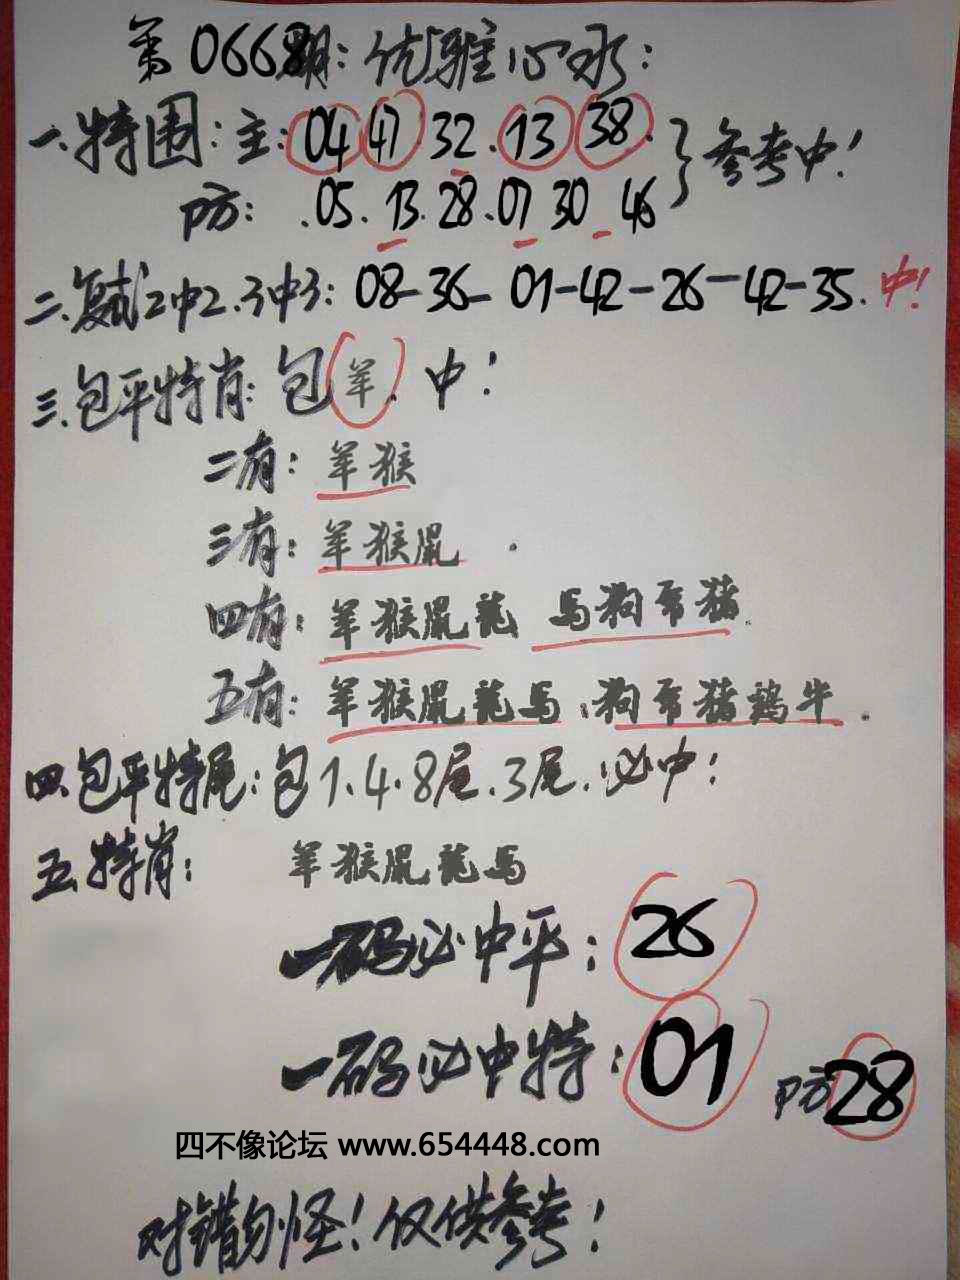 第0668期: 优雅心水:
一.特围:主:04 47.32.13 38. 参考中!
防: .05.13.28.07 30 46
二.复试2中2.3中3: 08-36-01-42-26-42-35.中!
三.包平特肖:包羊.中!
二有:羊猴
三有:羊猴鼠.
四有:羊猴鼠龍 馬狗 猪.
五有:羊猴鼠龍馬.狗 猪鷄牛.
四.包平特尾:包1.4.8尾.3尾.必中!
五.特肖: 羊猴鼠龍馬
一码必中平: 26
一码必中特: 01 防28
四不像论坛 www.654448.com
对错勿怪!仅供参考!